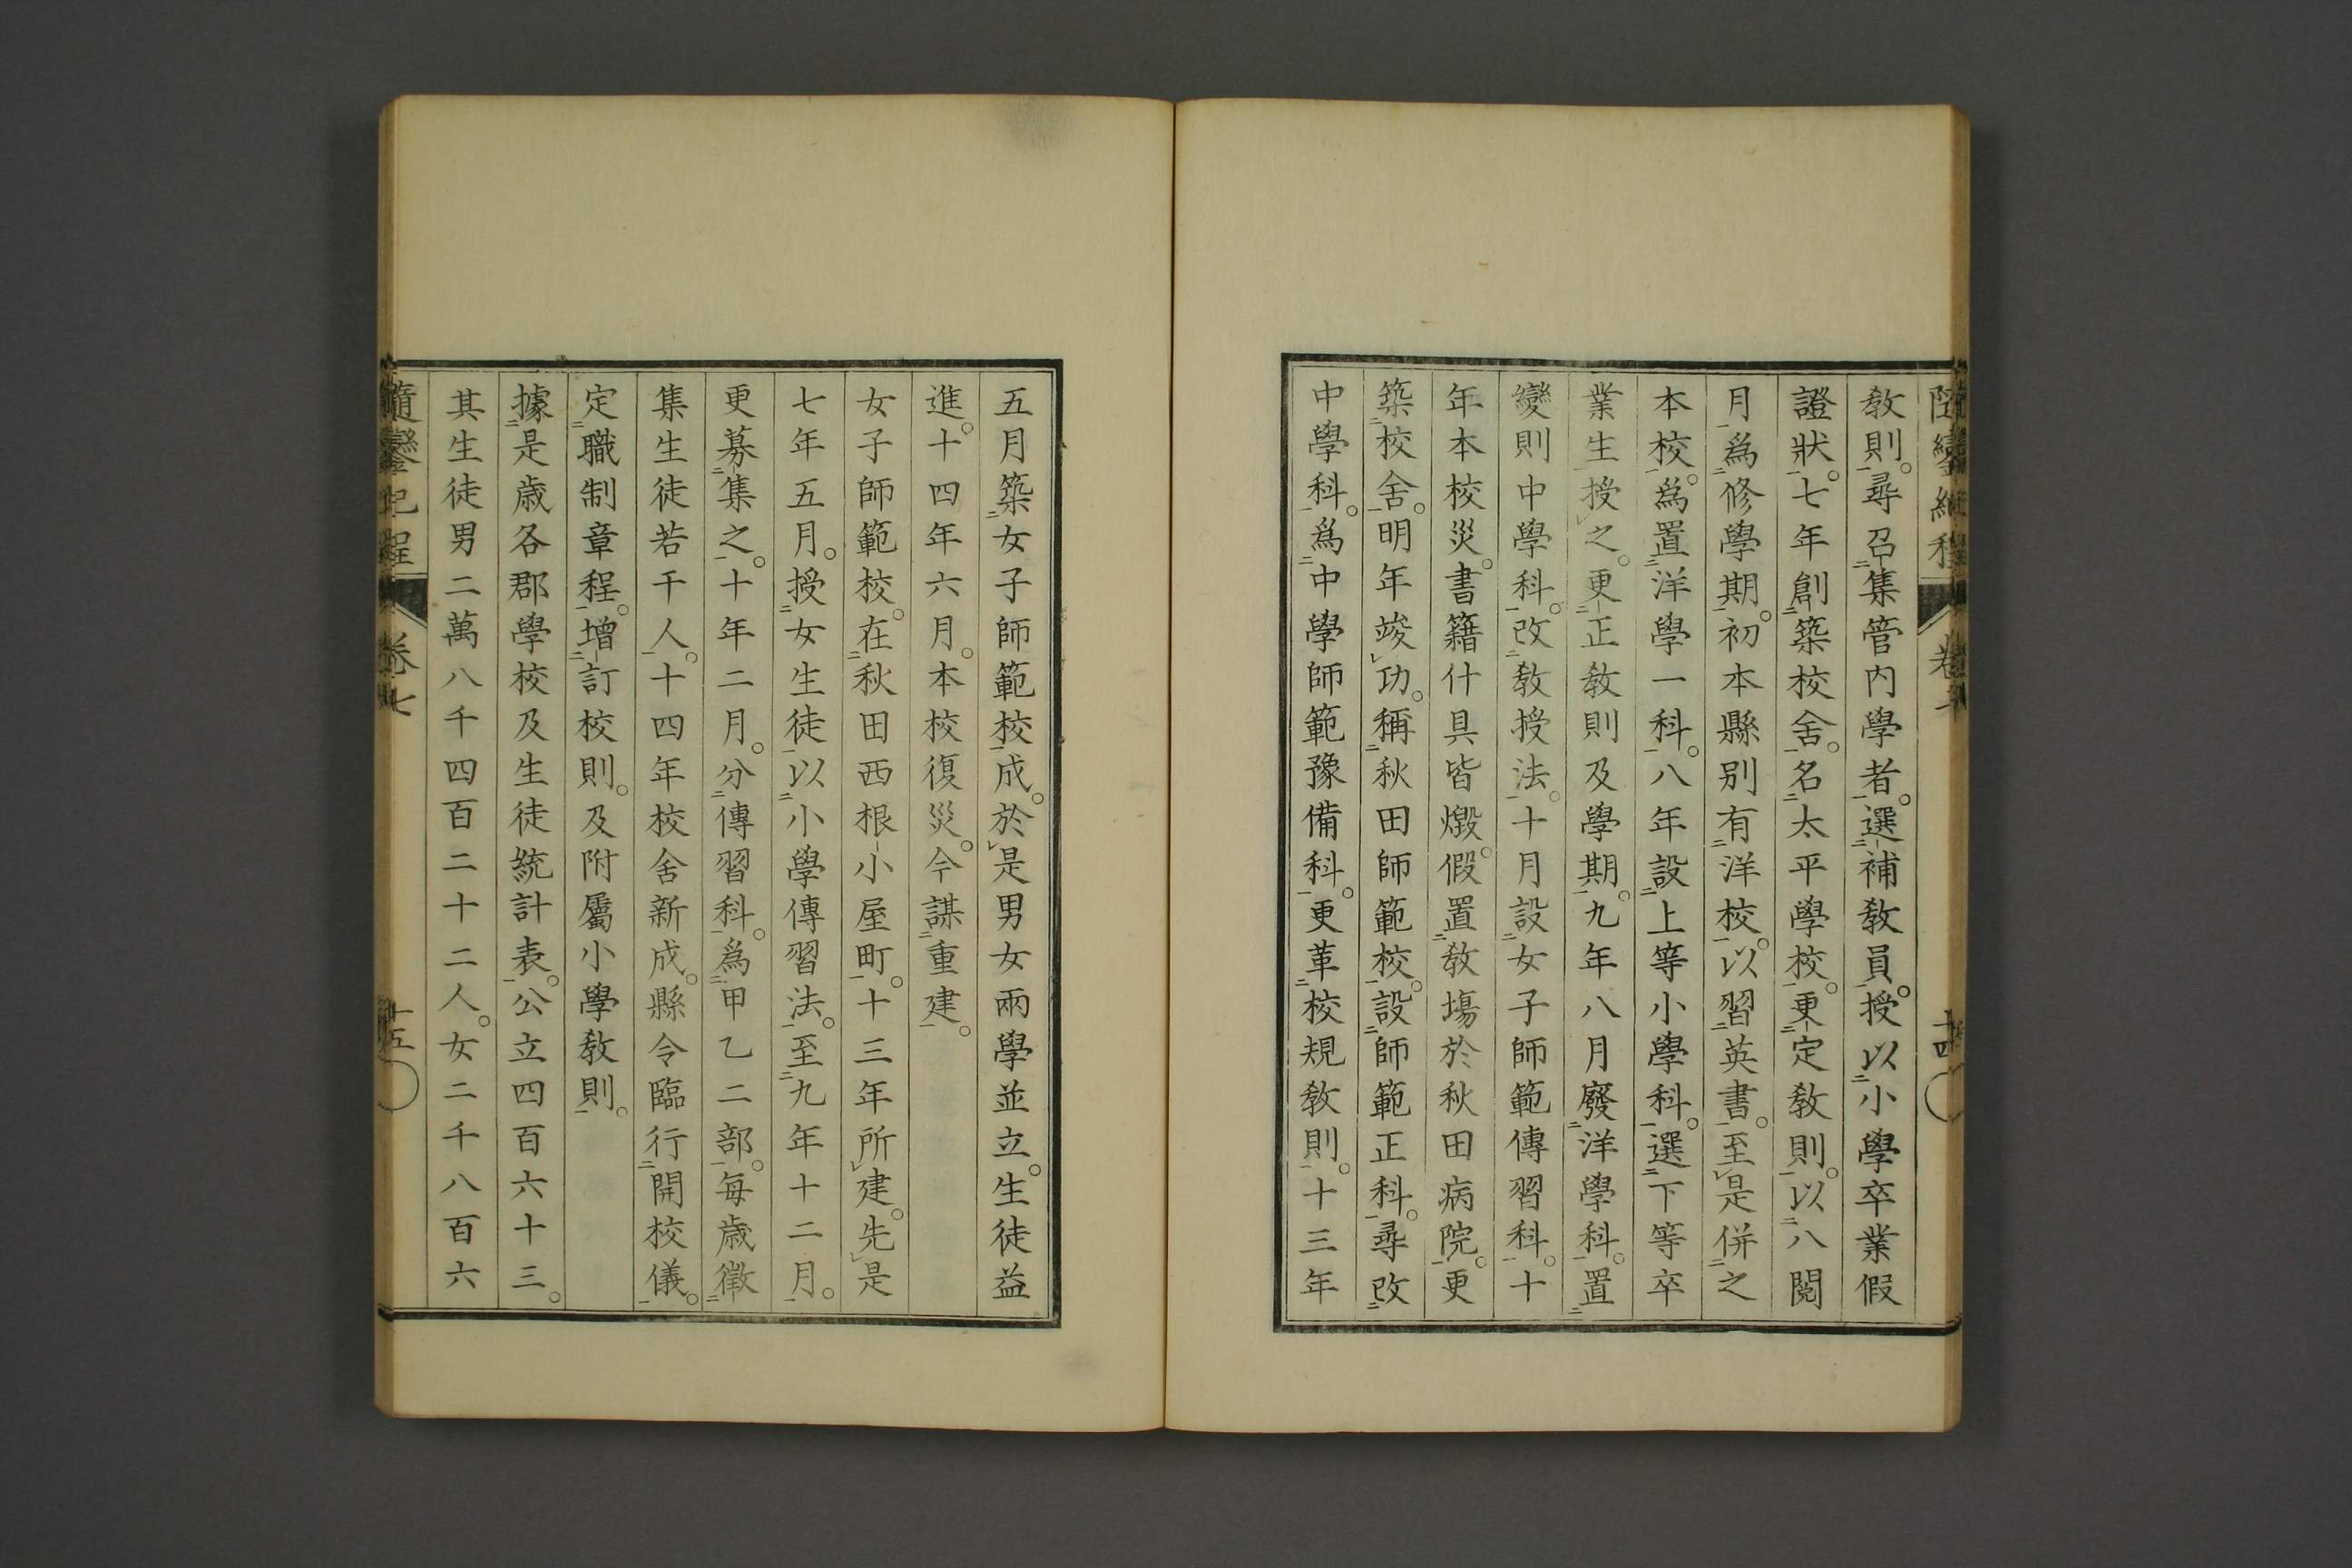 隨鑾紀程
卷七
十四
教則。尋召集管内學者。選補教員。授以小學卒業假
證狀。七年創築校舍。名太平學校。更定教則。以八閲
月爲修學期。初本縣別有洋校。以習英書。至是併之
本校。爲置洋學一科。八年設上等小學科。選下等卒
業生授之。更正教則及學期。九年八月廢洋學科。置
變則中學科。改教授法。十月設女子師範傳習科。十
年本校災。書籍什具皆燬。假置教塲於秋田病院。更
築校舍。明年竣功。稱秋田師範校。設師範正科。尋改
中學科。爲中學師範豫備科。更革校規教則。十三年
五月築女子師範校成。於是男女兩學並立。生徒益
進。十四年六月。本校復災。今謀重建。
女子師範校。在秋田西根小屋町。十三年所建。先是
七年五月。授女生徒以小學傳習法。至九年十二月。
更募集之。十年二月。分傳習科。爲甲乙二部。每歳徵
集生徒若干人。十四年校舍新成。縣令臨行開校儀。
定職制章程。增訂校則。及附屬小學教則。
據是歳各郡學校及生徒統計表。公立四百六十三。
其生徒男二萬八千四百二十二人。女二千八百六
隨鑾紀程
卷七
十五